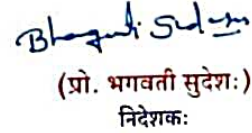 Bhagwati Sudesh
(प्रो. भगवती सुदेश:)
निदेशक: